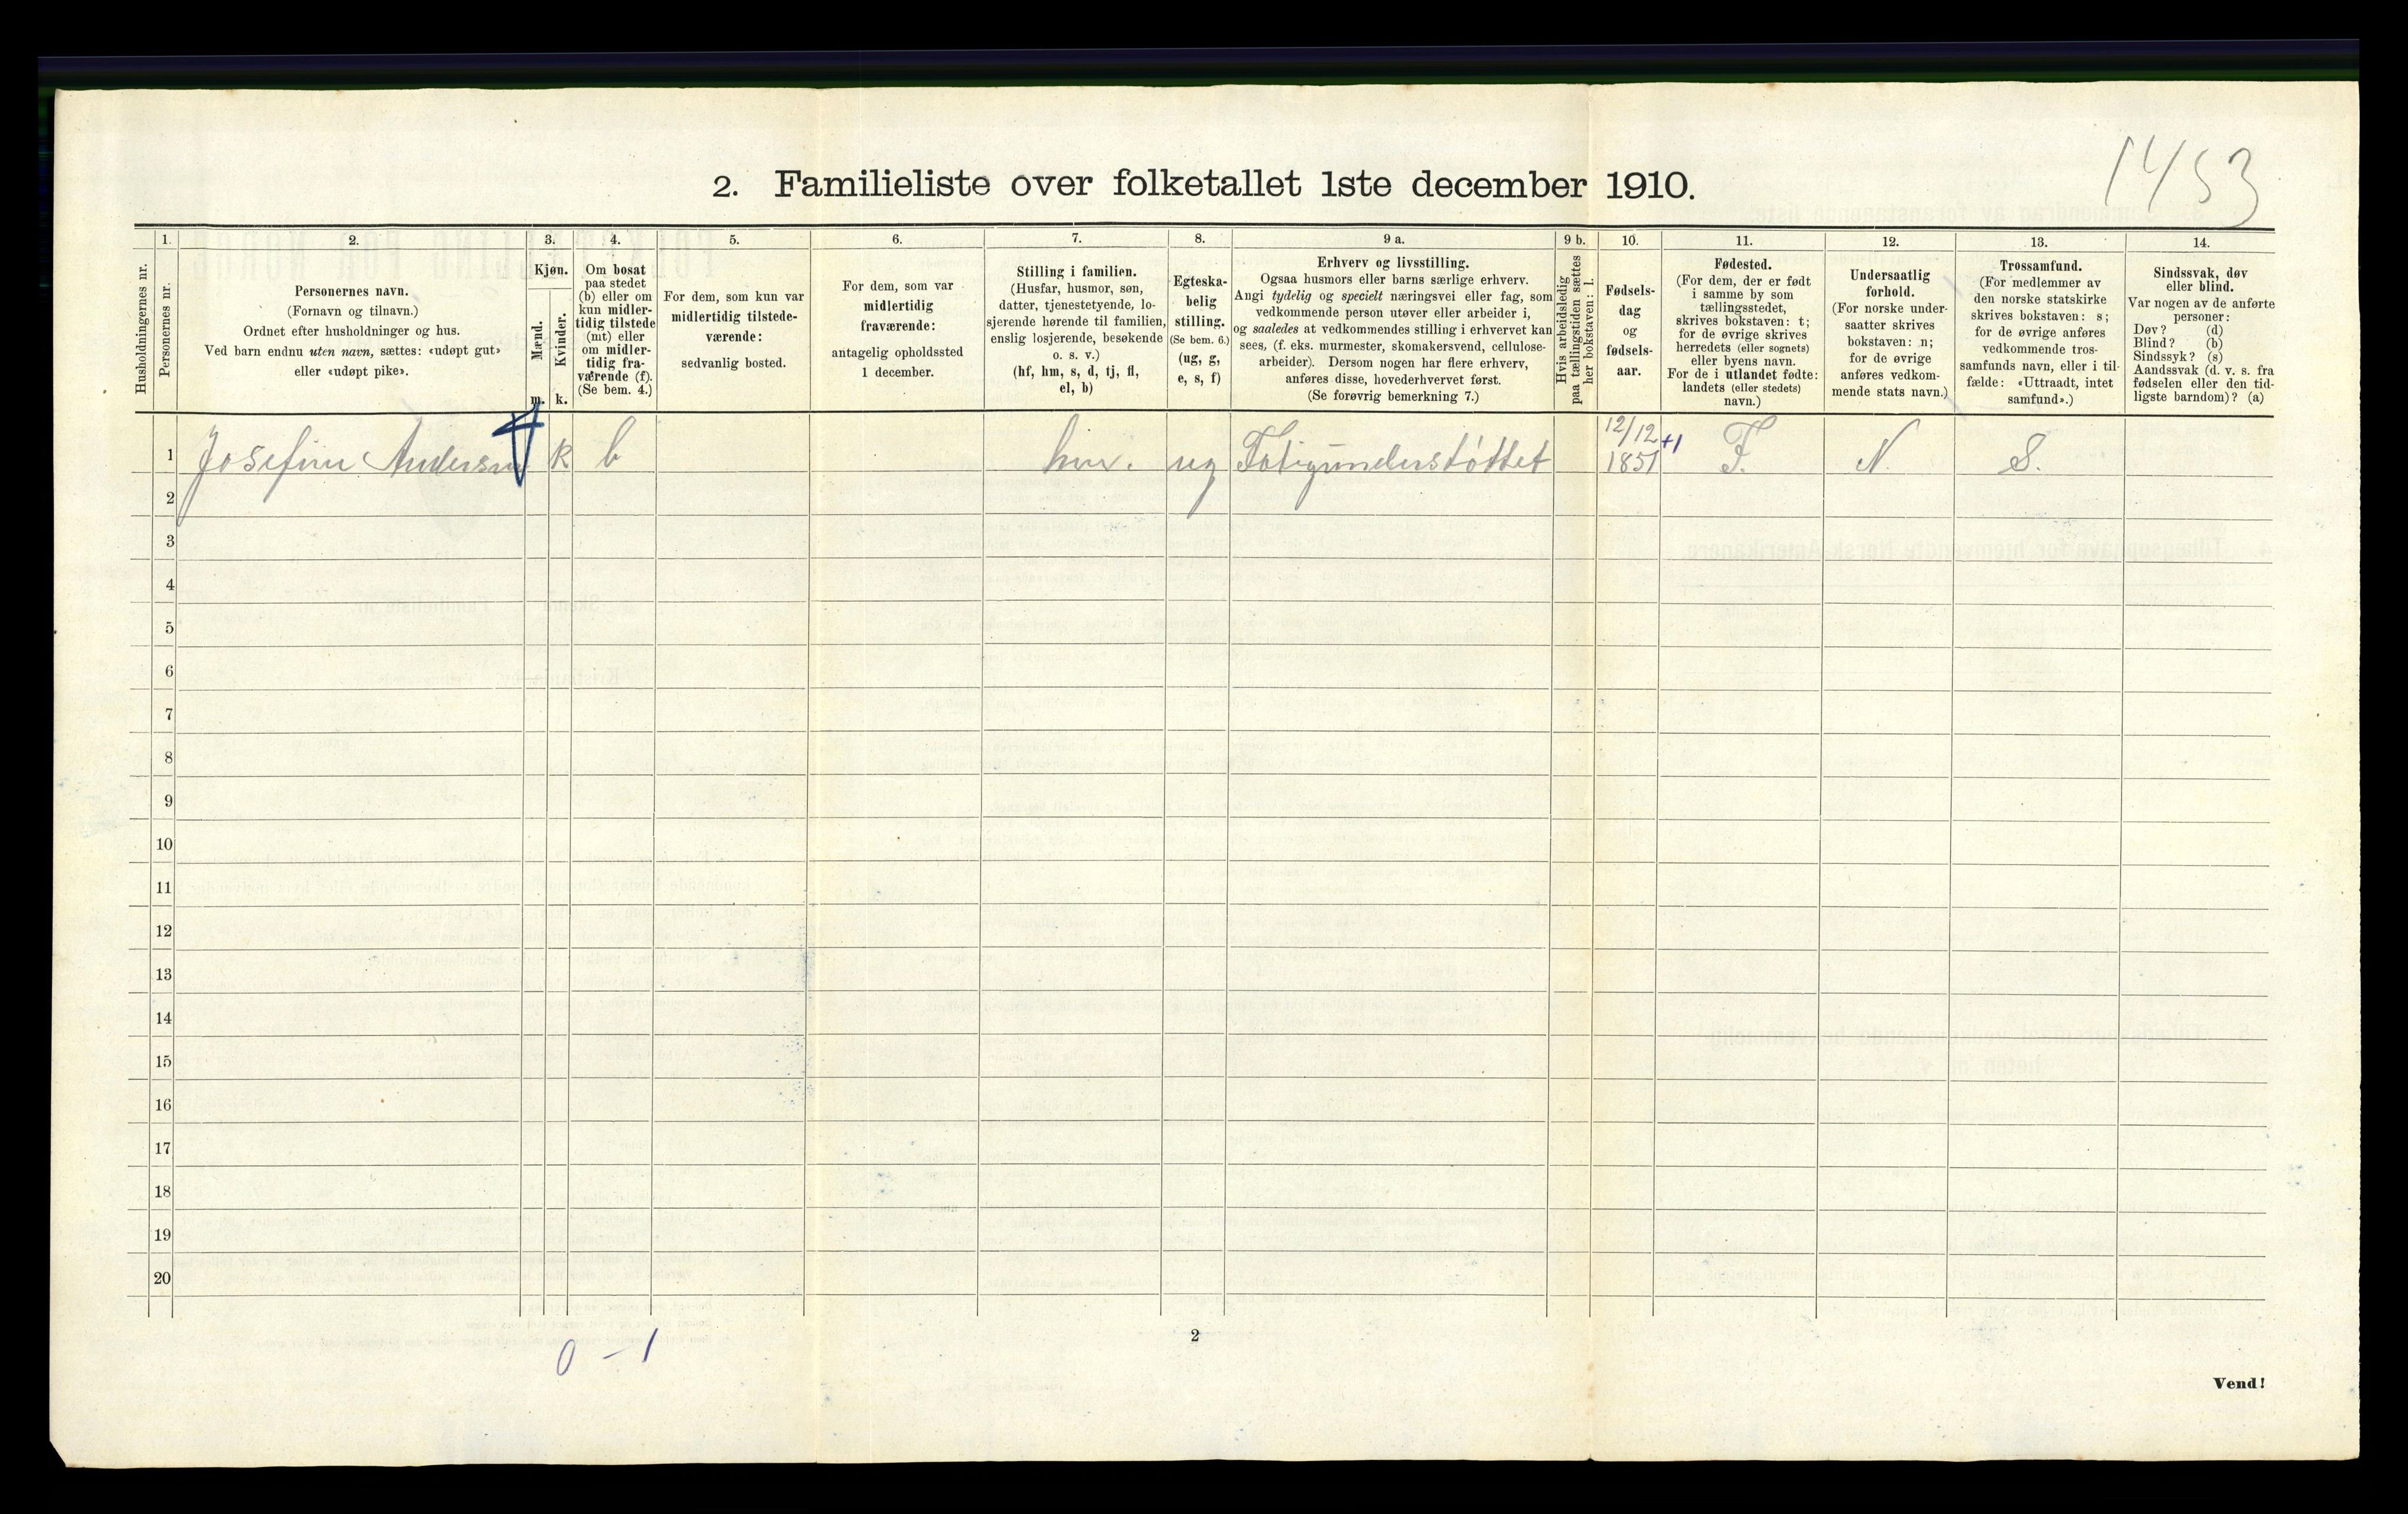 1453
2. Familieliste over folketallet 1ste december 1910.
Husholdningernes nr.
1.
Personernes nr.
2.
Personernes navn.
(Fornavn og tilnavn.)
Ordnet efter husholdninger og hus.
Ved barn endnu uten navn, sættes: «udøpt gut»
eller «udøpt pike».
3.
Kjøn.
Mænd.
m.
Kvinder.
k.
4.
Om bosat
paa stedet
(b) eller om
kun midler-
tidig tilstede
(mt) eller
om midler-
tidig fra-
værende (f).
(Se bem. 4.)
5.
For dem, som kun var
midlertidig tilstede-
værende:
sedvanlig bosted.
6.
For dem, som var
midlertidig
fraværende:
antagelig opholdssted
1 december.
7.
Stilling i familien.
(Husfar, husmor, søn,
datter, tjenestetyende, lo-
sjerende hørende til familien,
enslig losjerende, besøkende
o. s. v.)
(hf, hm, s, d, tj, fl,
el, b)
8.
Egteska-
belig
stilling.
(Se bem. 6.)
(ug, g,
e, s, f)
9 a.
Erhverv og livsstilling.
Ogsaa husmors eller barns særlige erhverv.
Angi tydelig og specielt næringsvei eller fag, som
vedkommende person utøver eller arbeider i,
og saaledes at vedkommendes stilling i erhvervet kan
sees, (f. eks. murmester, skomakersvend, cellulose-
arbeider). Dersom nogen har flere erhverv,
anføres disse, hovederhvervet først.
(Se forøvrig bemerkning 7.)
9 b.
Hvis arbeidsledig
paa tællingstiden sættes
her bokstaven: l.
10.
Fødsels-
dag
og
fødsels-
aar.
11.
Fødested.
(For dem, der er født
i samme by som
tællingsstedet,
skrives bokstaven: t;
for de øvrige skrives
herredets (eller sognets)
eller byens navn.
For de i utlandet fødte:
landets (eller stedets)
navn.)
12.
Undersaatlig
forhold.
(For norske under-
saatter skrives
bokstaven: n;
for de øvrige
anføres vedkom-
mende stats navn.)
13.
Trossamfund.
(For medlemmer av
den norske statskirke
skrives bokstaven: s;
for de øvrige anføres
vedkommende tros-
samfunds navn, eller i til-
fælde: «Uttraadt, intet
samfund».)
14.
Sindssvak, døv
eller blind.
Var nogen av de anførte
personer:
Døv? (d)
Blind? (b)
Sindssyk? (s)
Aandssvak (d. v. s. fra
fødselen eller den tid-
ligste barndom)? (a)
1 Josefine Andersen k b hm. ug Fatigunderstøttet 12/12 1851 +1 T. N. S.
2
3
4
5
6
7
8
9
10
11
12
13
14
15
16
17
18
19
20
0 - 1
2
Vend!